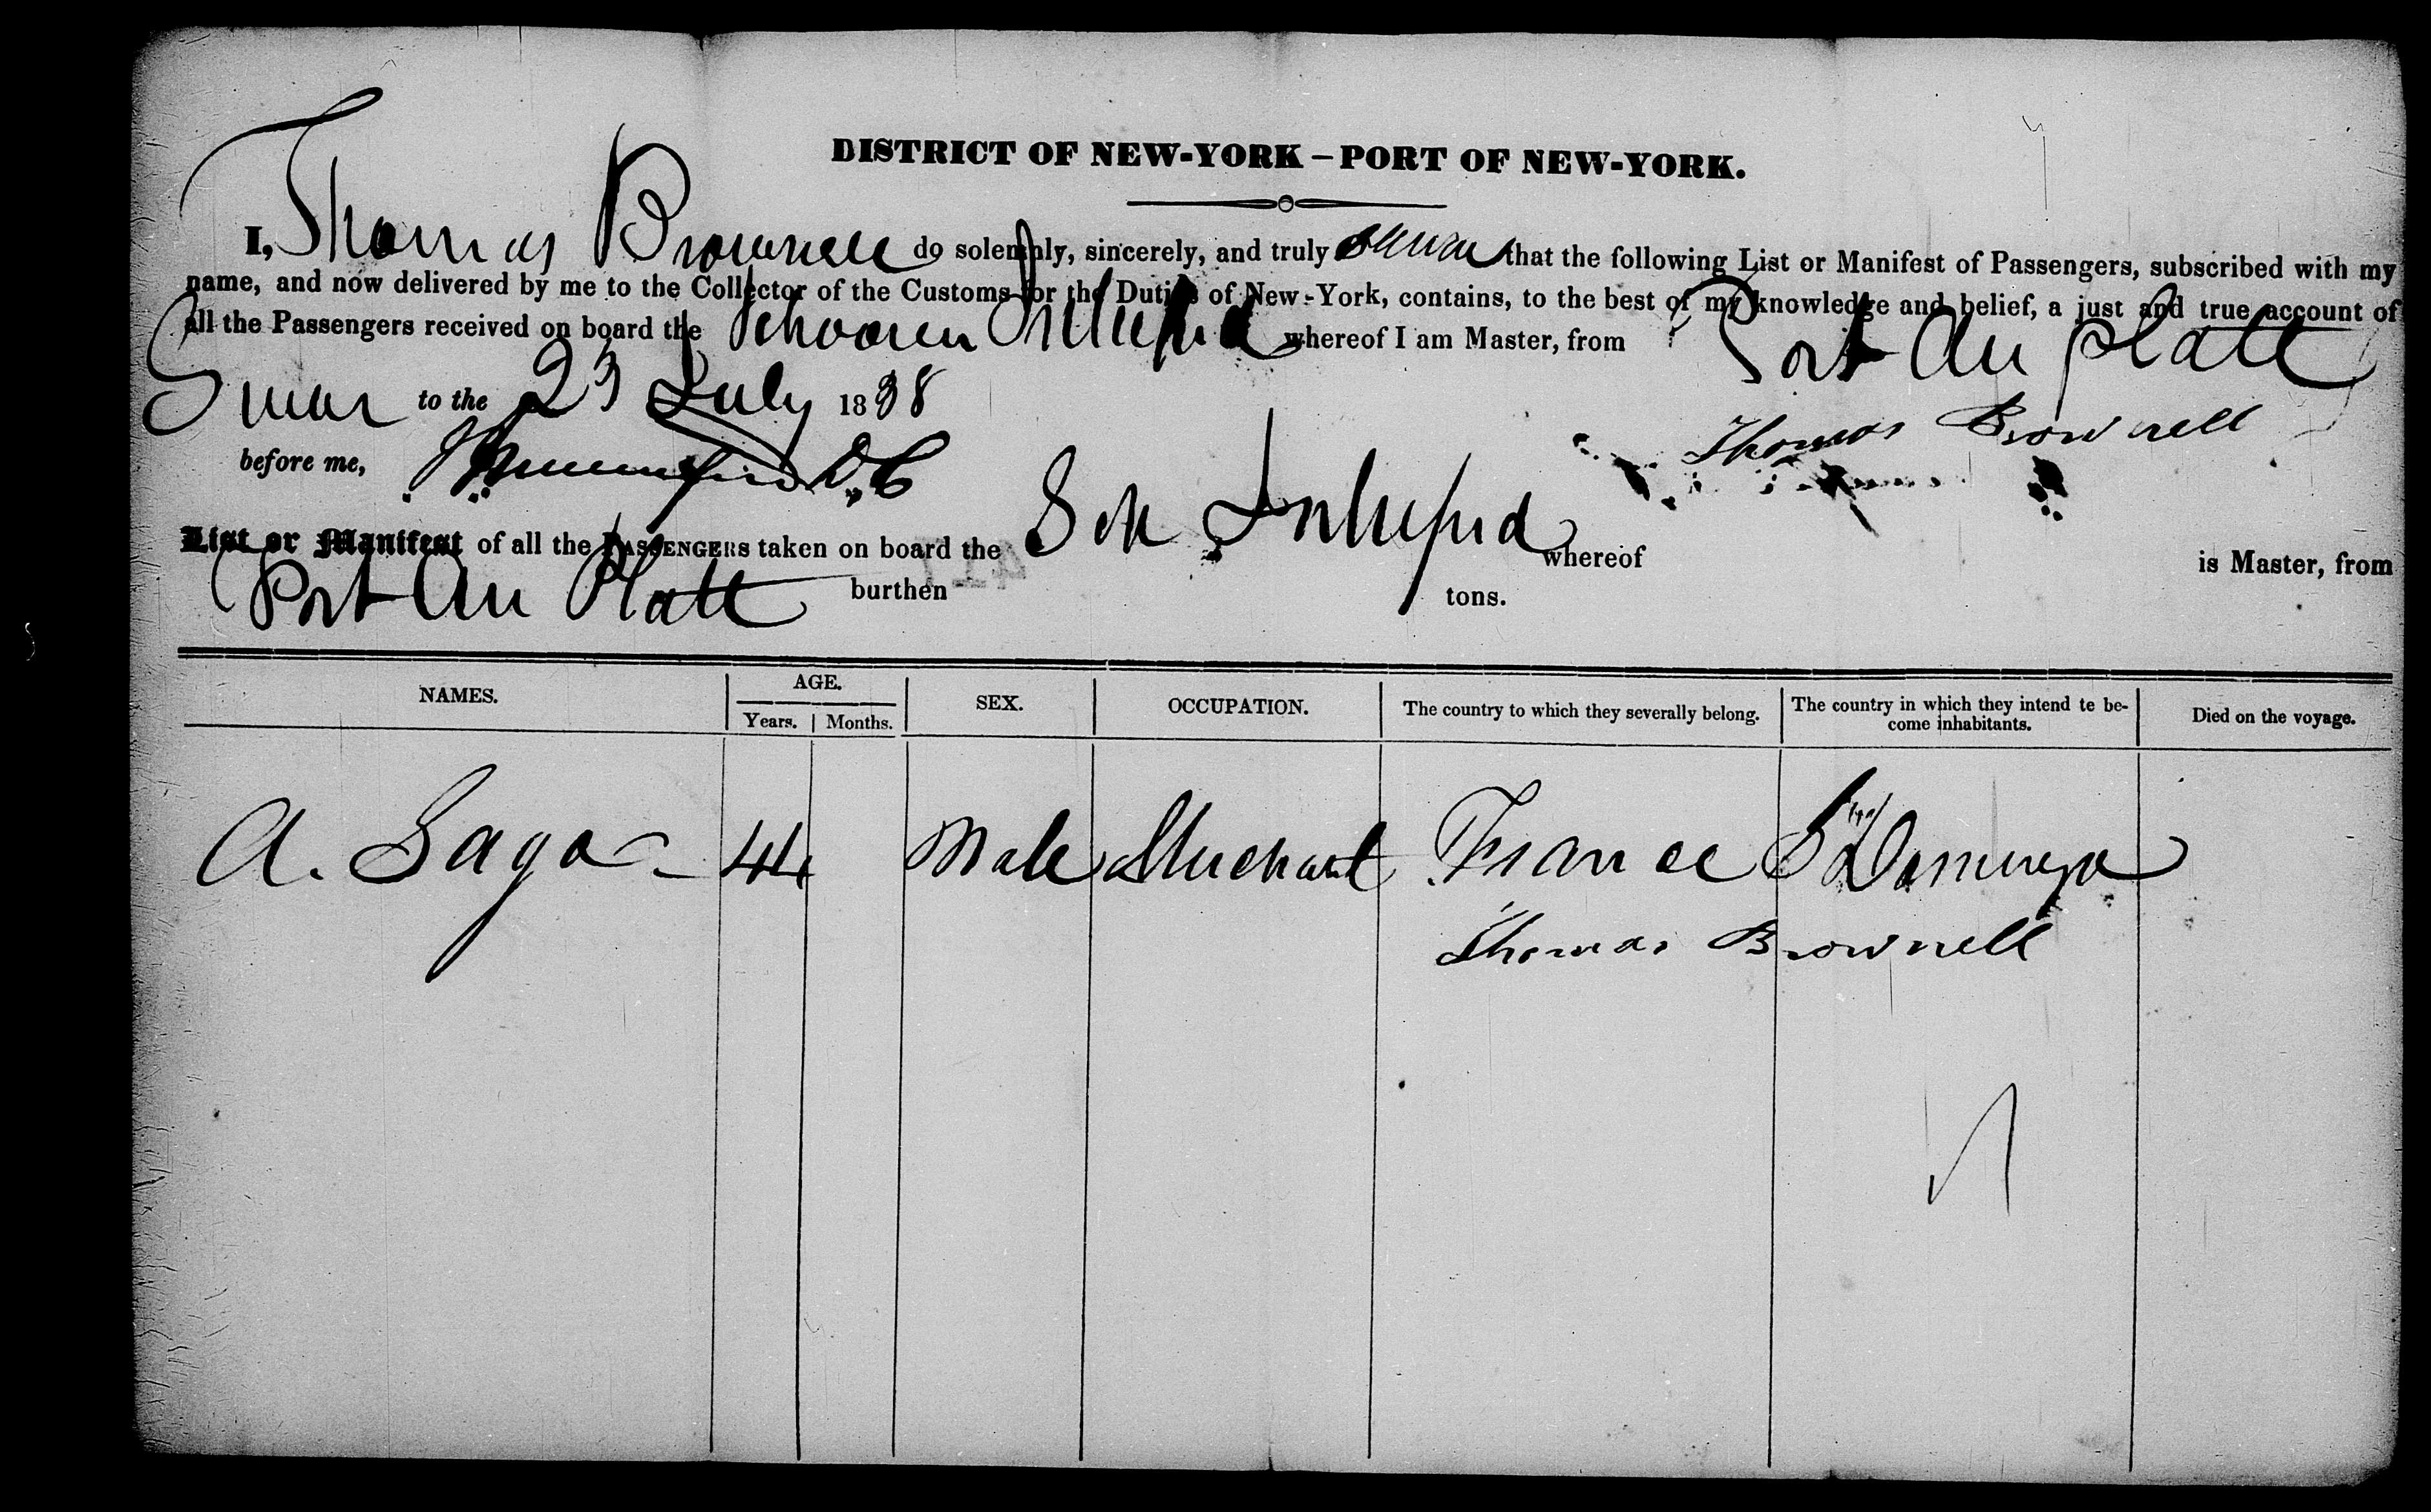 DISTRICT OF NEW-YORK – PORT OF NEW-YORK.
I, Thomas Brownell do solemnly, sincerely, and truly swear that the following List or Manifest of Passengers, subscribed with my
name, and now delivered by me to the Collector of the Customs for the Duties of New-York, contains, to the best of my knowledge and belief, a just and true account of
all the Passengers received on board the Schooner Intrepid whereof I am Master, from Port Au Platt
Swor to the 23 July 1838
Thomas Brownell
before me, D.C
List or Manifest of all the PASSENGERS taken on board the Sch Intrepid whereof is Master, from
Port Au Platt burthen tons.
NAMES. AGE. SEX. OCCUPATION. The country to which they severally belong. The country in which they intend te be-come inhabitants. Died on the voyage.
Years. Months.
A. 44 Male Merchant France St Domingo
Thomas Brownell